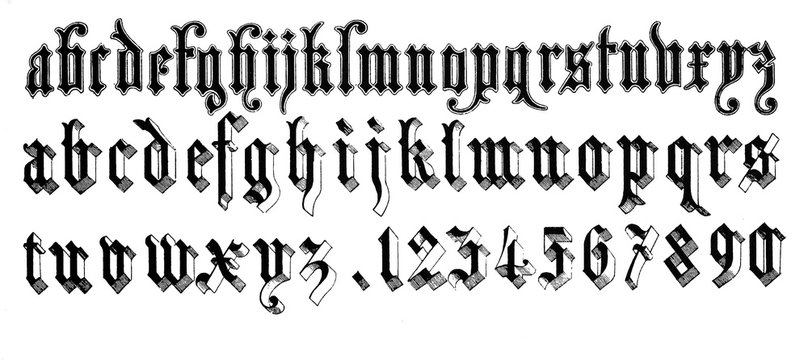 abcdefghijklmnopqrstuvxyz
abcdefghijklmnopqrs
tuvwxyz.1234567890